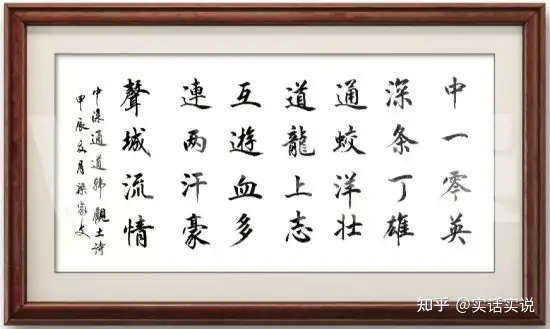 中深通道互連聲
一条蛟龍遊两城
零丁洋上血汗流
英雄壮志多豪情
中深通道觀土诗
甲辰月梁家文
知乎 @实话实说